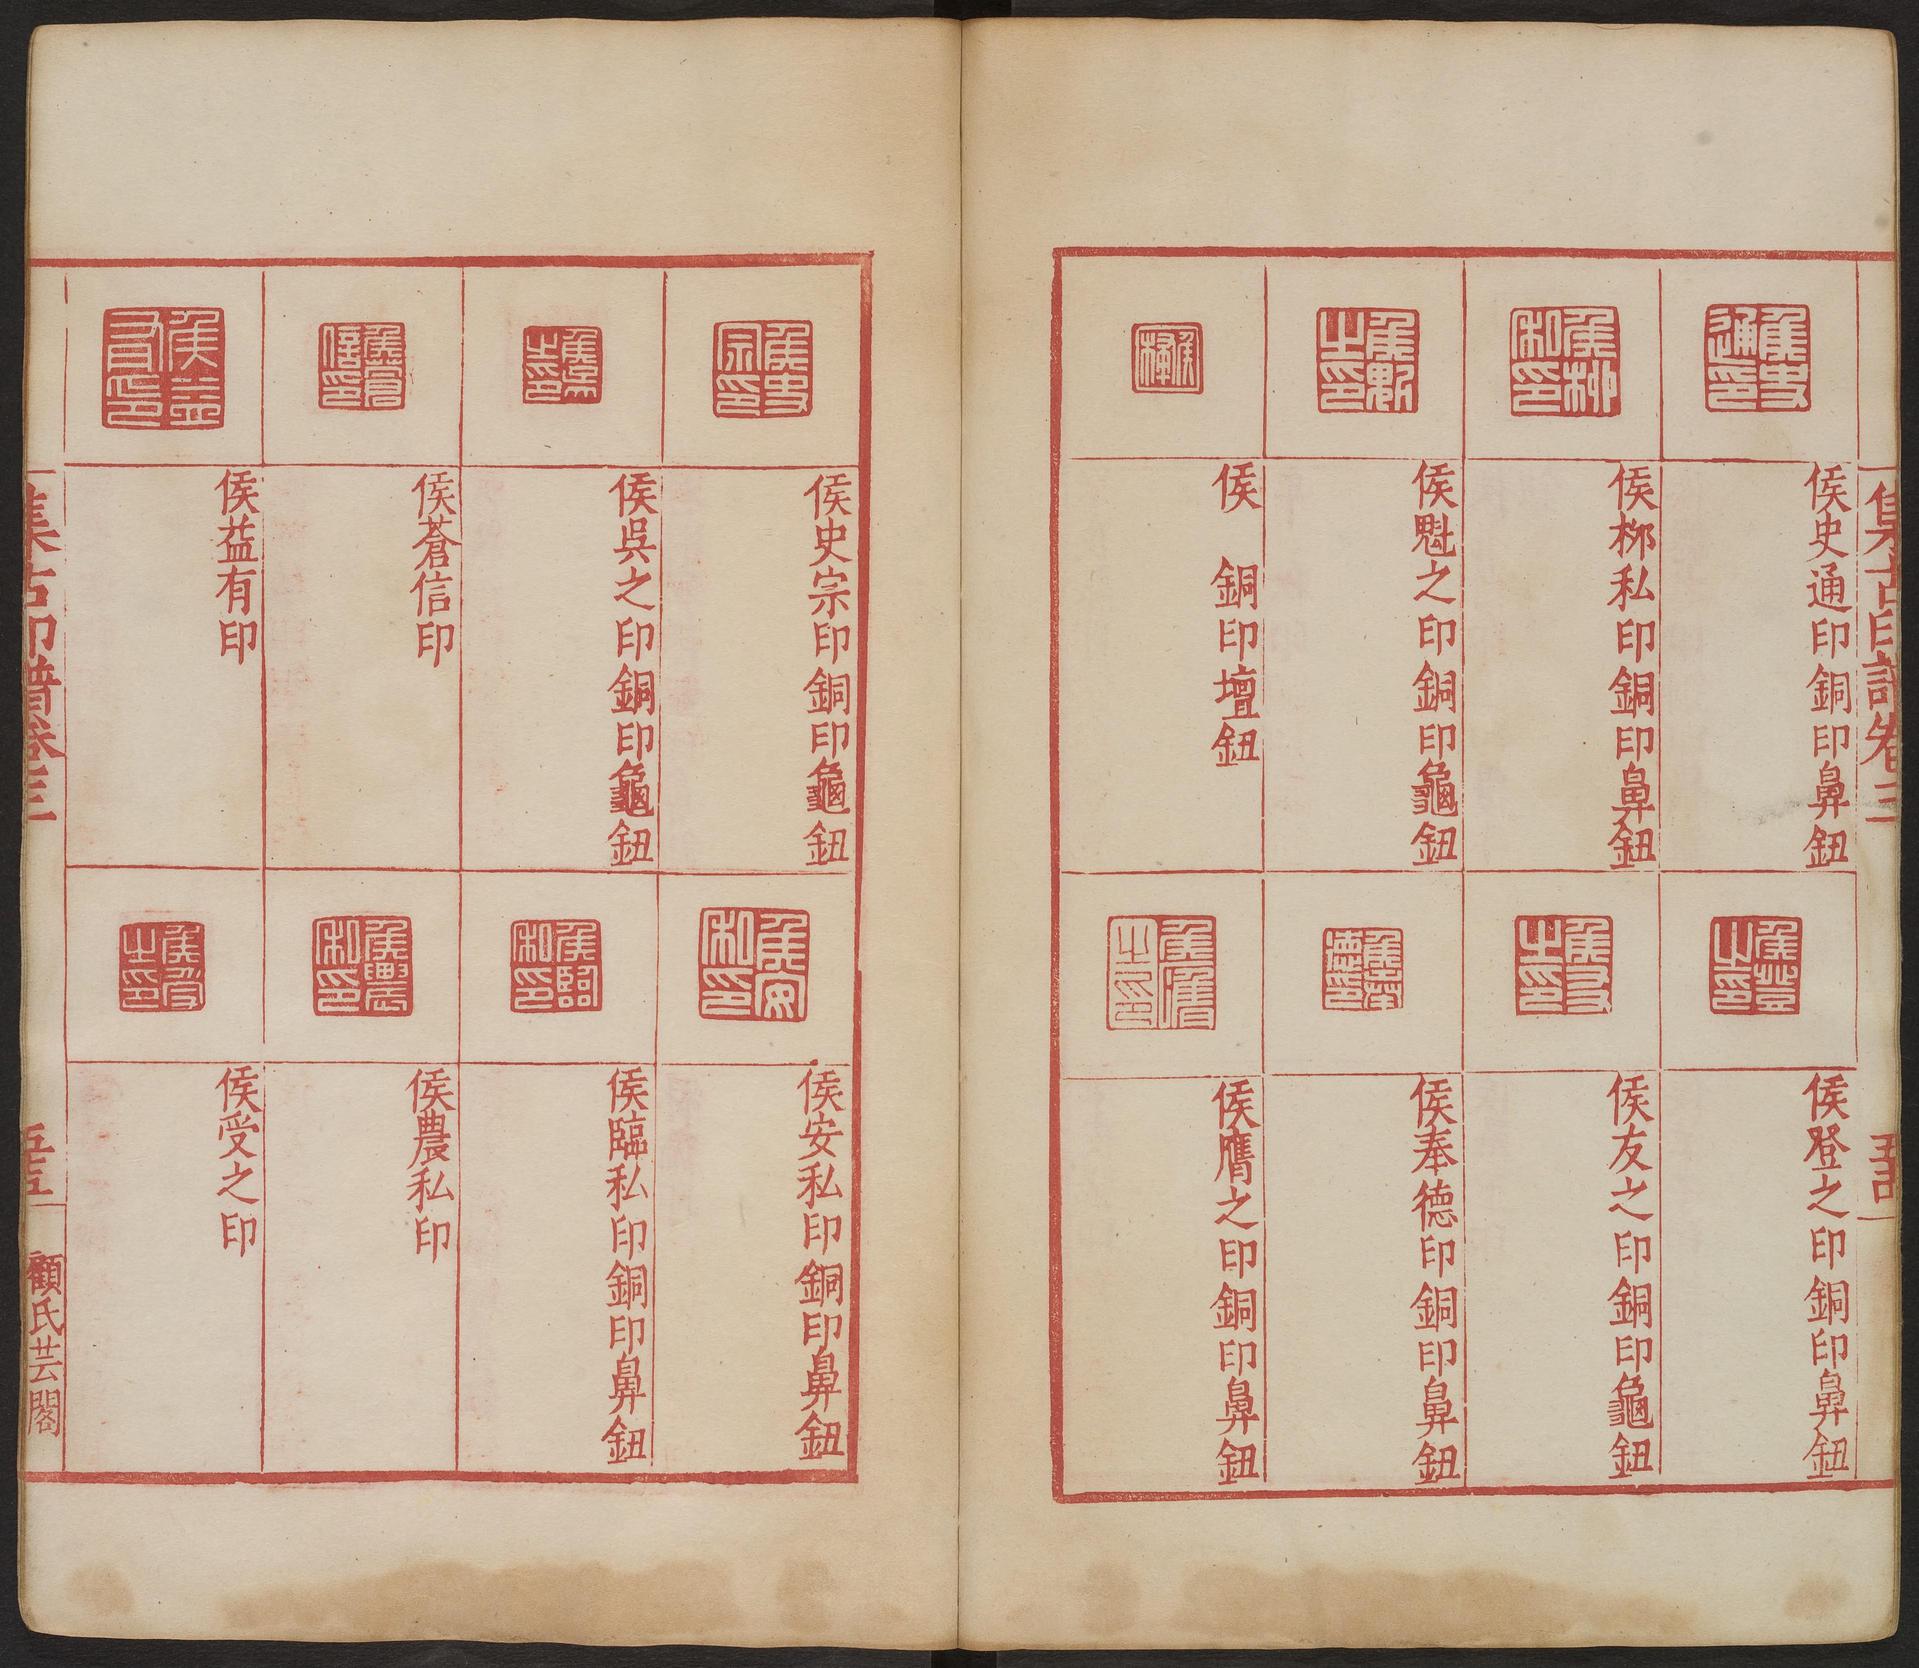 集古印譜卷三
侯史通印銅印鼻鈕
侯栁私印銅印鼻鈕
侯魁之印銅印龜鈕
侯　銅印壇鈕
侯登之印銅印鼻鈕
侯友之印銅印龜鈕
侯奉德印銅印鼻鈕
侯膺之印銅印鼻鈕
侯史宗印銅印龜鈕
侯吳之印銅印龜鈕
侯蒼信印
侯益有印
侯安私印銅印鼻鈕
侯臨私印銅印鼻鈕
侯農私印
侯受之印
集古印譜卷三
五五
顧氏芸閣